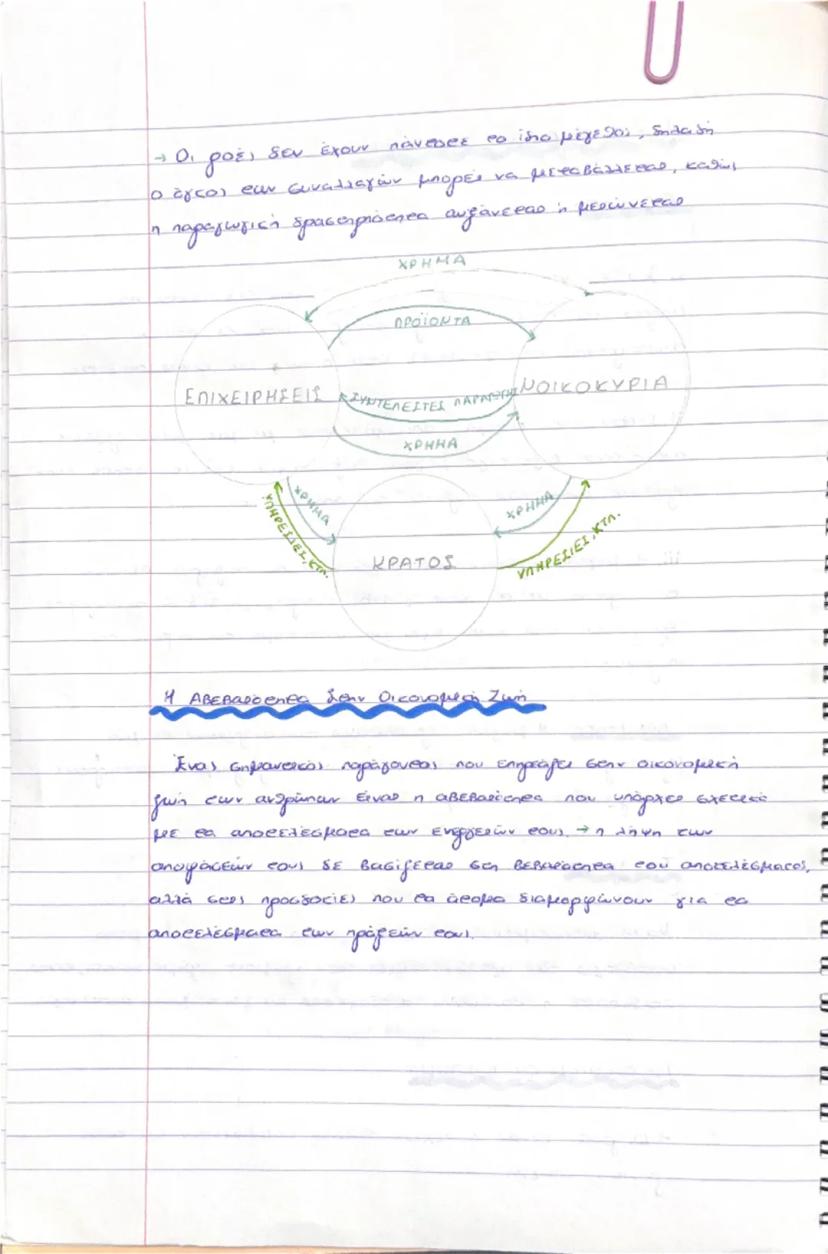 → Οι ροές δεν έχουν πάντοτε το ίδιο μέγεθος, δηλαδή
ο όγκος των συναλλαγών μπορεί να μεταβάλλεται, καθώς
η παραγωγική δραστηριότητα αυξάνεται ή μειώνεται
ΧΡΗΜΑ
ΠΡΟΪΟΝΤΑ
ΕΠΙΧΕΙΡΗΣΕΙΣ
ΣΥΝΤΕΛΕΣΤΕΣ ΠΑΡΑΓΩΓΗΣ
ΝΟΙΚΟΚΥΡΙΑ
ΧΡΗΜΑ
ΧΡΗΜΑ
ΧΡΗΜΑ
ΥΠΗΡΕΣΙΕΣ, ΚΤΛ.
ΚΡΑΤΟΣ
ΥΠΗΡΕΣΙΕΣ, ΚΤΛ.
Η ΑΒΕβαιότητα Στην Οικονομική Ζωή
Ένας σημαντικός παράγοντας που επηρεάζει στην οικονομική
ζωή των ανθρώπων είναι η αβεβαιότητα που υπάρχει σχετικά
με τα αποτελέσματα των ενεργειών τους. → η λήψη των
αποφάσεών τους δε βασίζεται στη βεβαιότητα του αποτελέσματος,
αλλά στις προσδοκίες που τα άτομα διαμορφώνουν για τα
αποτελέσματα των πράξεών τους.